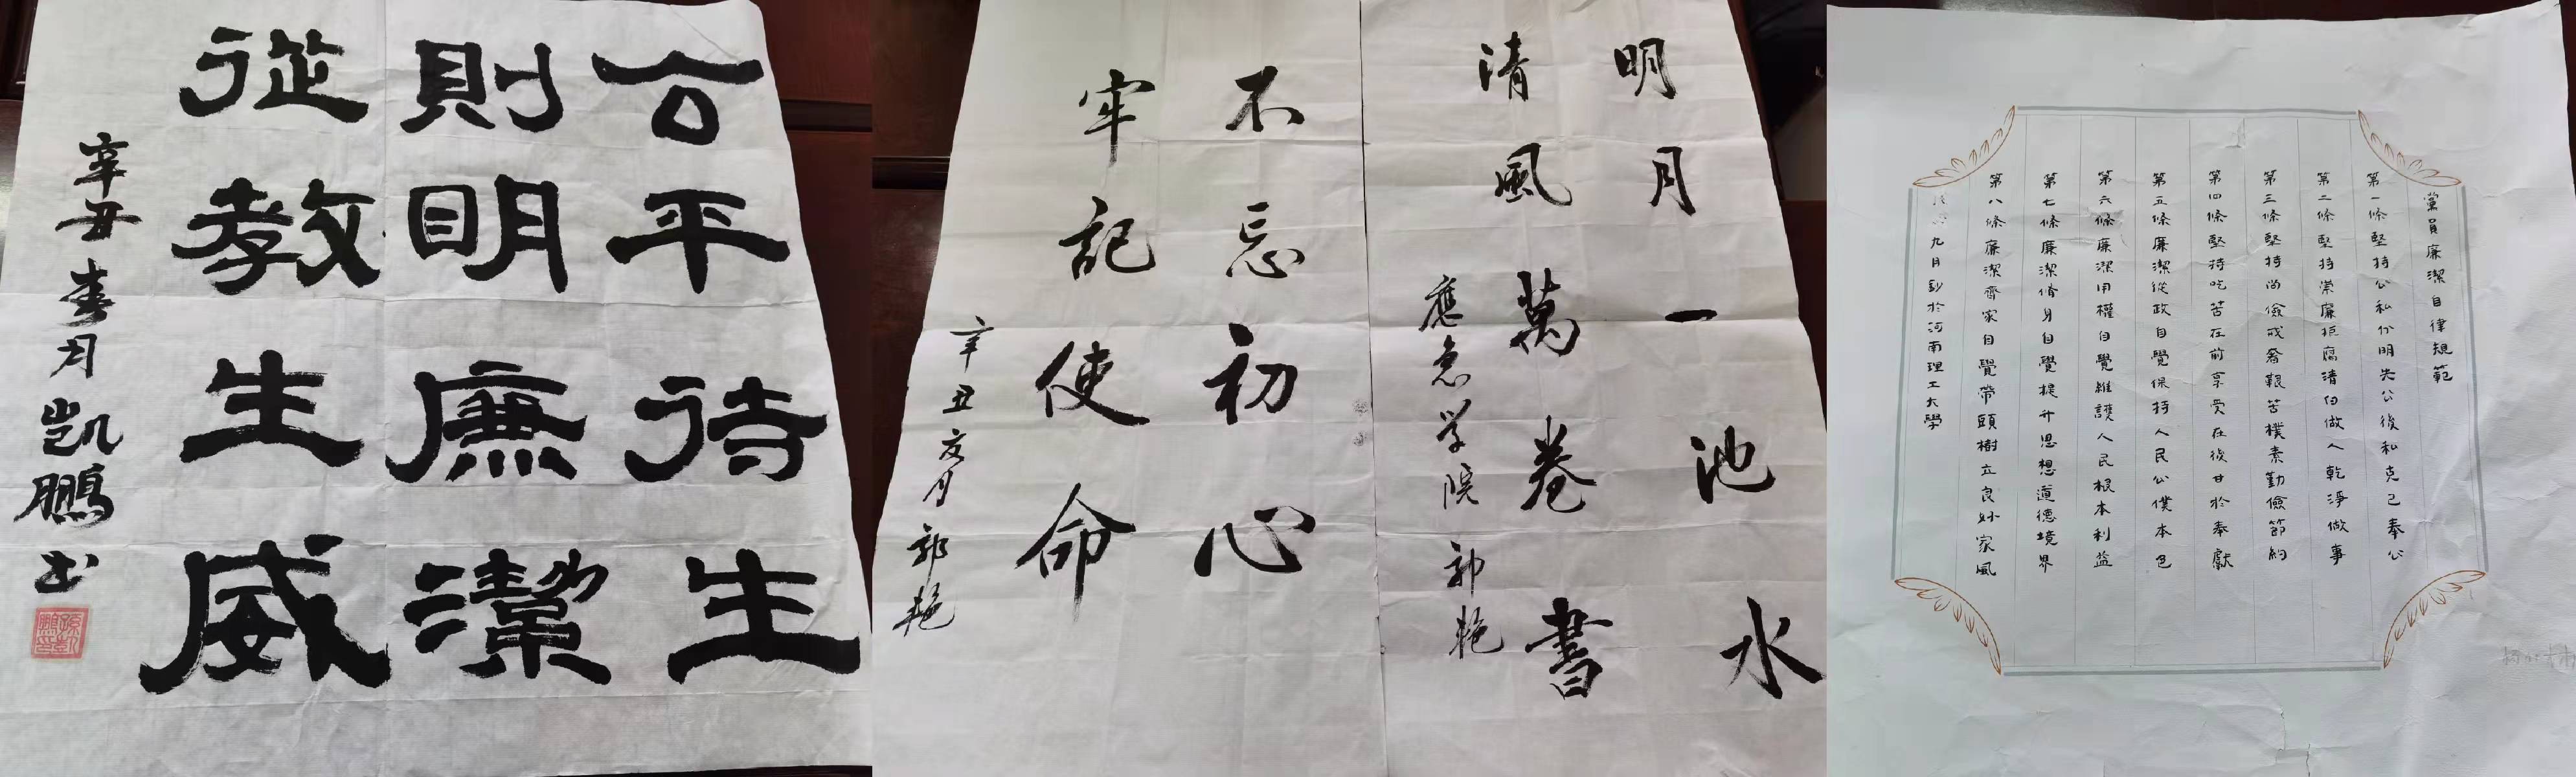 公平待生
則明廉潔
從教生威
辛丑春月凱鵬書
不忘初心
牢記使命
辛丑夏月郭艷
明月一池水
清風萬卷書
應急学院郭艳
黨員廉潔自律規範
第一條堅持公私分明先公後私克己奉公
第二條堅持崇廉拒腐清白做人乾淨做事
第三條堅持尚儉戒奢艱苦樸素勤儉節約
第四條堅持吃苦在前享受在後甘於奉獻
第五條廉潔從政自覺保持人民公僕本色
第六條廉潔用權自覺維護人民根本利益
第七條廉潔脩身自覺提升思想道德境界
第八條廉潔齊家自覺帶頭樹立良好家風
九月 於河南理工大學